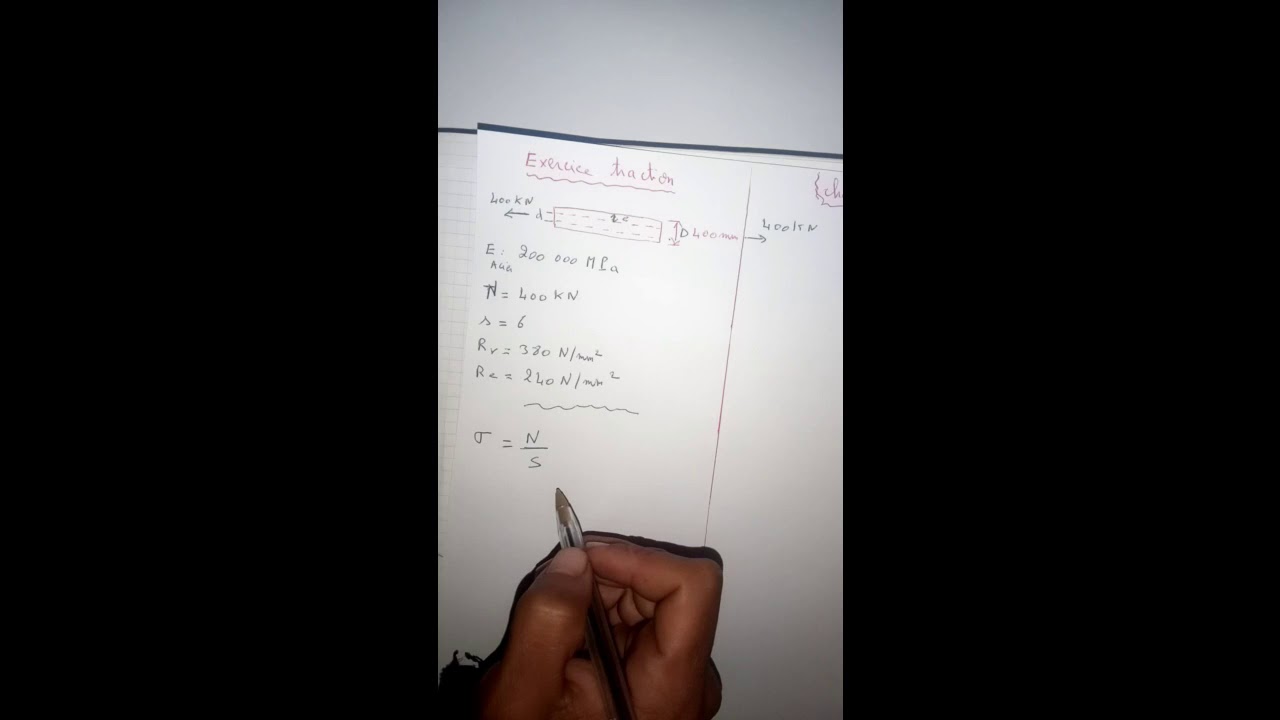 Exercice traction
400 KN
d
D 400mm
400 KN
E : 200 000 MPa
N = 400 KN
s = 6
Rr = 380 N/mm²
Re = 240 N/mm²
σ = N
S